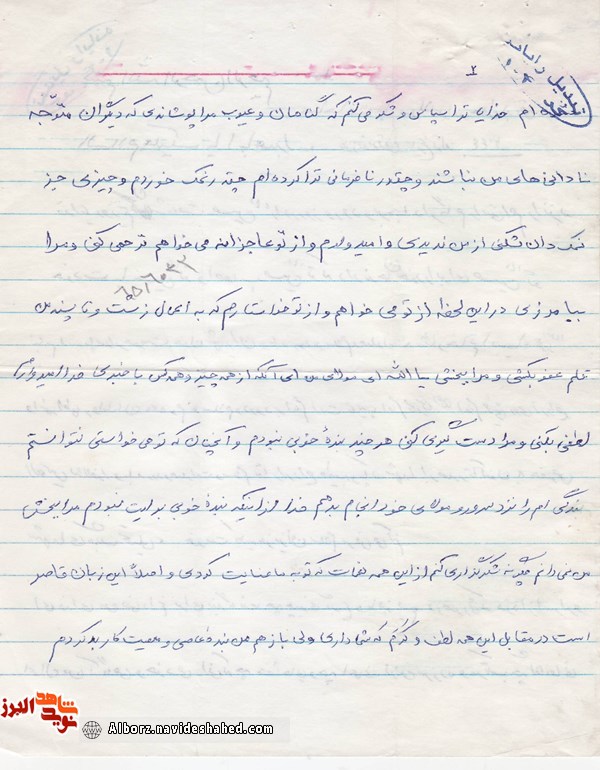 ۲
تبدیل
ام خدایا ترا سپاس و شکر می‌کنم که گناهان و عیوب مرا پوشاندی که دیگران متوجه
نادانی‌های من نباشند و چقدر نافرمانی ترا کرده‌ام چقدر نمک خوردم و چیزی جز
نمک‌دان شکنی از من ندیدی و امیدوارم و از تو عاجزانه می‌خواهم ترحمی کنی و مرا
بیامرزی در این لحظه از تو می خواهم و از تو خواستارم که به اعمال زشت و ناپسند من
قلم عفو بکشی و مرا ببخشی یا الله ای مولای من ای آنکه از همه چیز و همه کس باخبری خدا امیدوارم
لطفی بکنی و مرا دست گیری کنی هر چند بندهٔ خوبی نبودم و آنچنان که تو می‌خواستی نتوانستم
بندگی ام را نزد سرور و مولای خود انجام بدهم خدا از اینکه بندهٔ خوبی برایت نبودم مرا ببخش
من نمی دانم چگونه شکرگزاری کنم از این همه نعمات که تو به ما عنایت کردی و اصلاً این زبان قاصر
است در مقابل این همه لطف و کرم که شما داری ولی باز هم من بنده عاصی و معصیت کار بد کردم
شاهد
نوید
البرز
Alborz.navideshahed.com